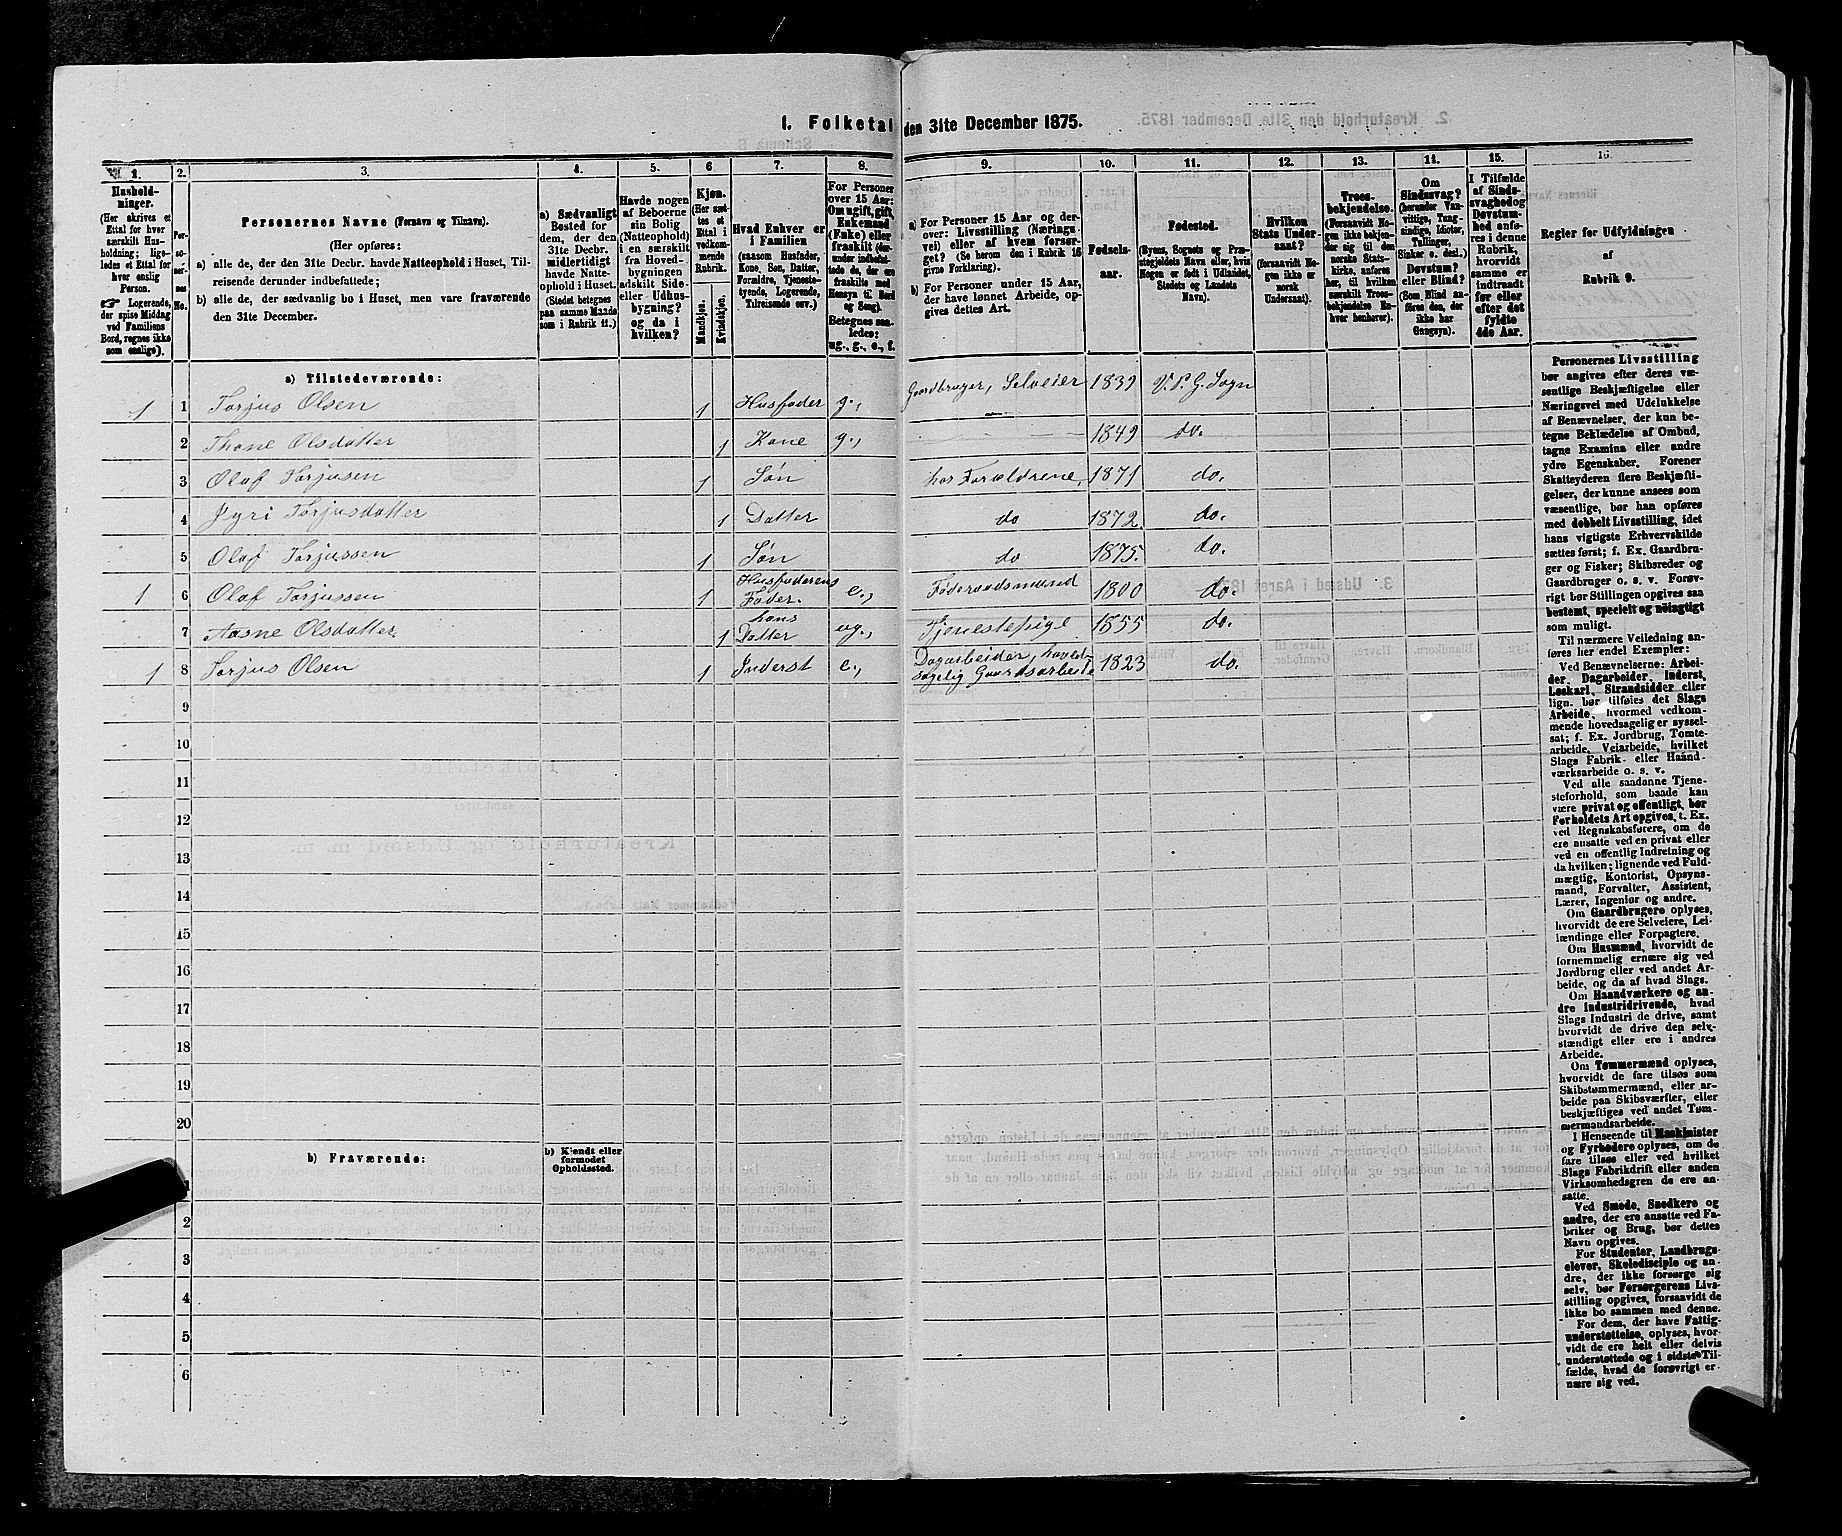 1. Folketal den 31te December 1875.
1. 2. 3. 4. 5. 6 7. 8. 9. 10. 11. 12. 13. 14. 15. 16.
Hushold-
ninger.
(Her skrives et
Ettal for hver
særskilt Hus-
holdning; lige-
ledes et Ettal for
hver enslig
Person.
☞ Logerende,
der spise Middag
ved Familiens
Bord, regnes ikke
som enslige).
Per-
so-
ner-
nes
No.
Personernes Navne (Fornavn og Tilnavn).
(Her opføres:
a) alle de, der den 31te Decbr. havde Natteophold i Huset, Til-
reisende derunder indbefattede;
b) alle de, der sædvanlig bo i Huset, men vare fraværende
den 31te December.
a) Sædvanligt
Bosted for
dem, der den
31te Decbr.
midlertidigt
havde Natte-
ophold i Huset.
(Stedet betegnes
paa samme Maade
som i Rubrik 11.)
Havde nogen
af Beboerne
sin Bolig
(Natteophold)
i en særskilt
fra Hoved-
bygningen
adskilt Side-
eller Udhus-
bygning?
og da i
hvilken?
Kjøn.
(Her sæt-
tes et
Ettal i
vedkom-
mende
Rubrik.
Mandkjøn.
Kvindekjøn.
Hvad Enhver er
i Familien
(saasom Husfader,
Kone, Søn, Datter,
Forældre, Tjeneste-
tyende, Logerende,
Tilreisende osv.)
For Personer
over 15 Aar:
Om ugift, gift,
Enkemand
(Enke) eller
fraskilt (der-
under indbefat-
tede de, der ere
fraskilte med
Hensyn til Bord
og Seng).
Betegnes saa-
ledes:
ug., g., e., f.
a) For Personer 15 Aar og der-
over: Livsstilling (Nærings-
vei) eller af hvem forsør-
get? (Se herom den i Rubrik 16
givne Forklaring).
b) For Personer under 15 Aar,
der have lønnet Arbeide, op-
gives dettes Art.
Fødsels-
aar.
Fødested.
(Byens, Sognets og Præ-
stegjeldets Navn eller, hvis
Nogen er født i Udlandet,
Stedets og Landets
Navn).
Hvilken
Stats Under-
saat?
(forsaavidt No-
gen ikke er
norsk
Undersaat).
Troes-
bekjendelse.
(Forsaavidt No-
gen ikke bekjen-
der sig til den
norske Stats-
kirke, anføres
her, til hvilken
særskilt Troes-
bekjendelse En-
hver henhører).
Om
Sindssvag?
(herunder Van-
vittige, Tung-
sindige, Idioter,
Tullinger,
Sinker o. desl.)
Døvstum?
eller Blind?
(Som Blind an-
føres den, der
ikke har
Gangsyn).
I Tilfælde
af Sinds-
svaghed og
Døvstum-
hed anfø-
res i denne
Rubrik,
hvorvidt
samme er
indtraadt
før eller
efter det
fyldte
4de Aar.
Regler for Udfyldningen
af
Rubrik 9.
a) Tilstedeværende:
1 1 Torjus Olsen 1 Husfader g., Gaardbruger, Selveier 1839 V. P. G. Sogn
2 Thone Olsdatter 1 Kone g., 1849 do.
3 Olaf Torjusen 1 Søn hos Forældrene, 1871 do.
4 Jyri Torjusdatter 1 Datter do 1872 do.
5 Olaf Torjussen 1 Søn do 1875. do.
1 6 Olaf Torjussen 1 Husfaderens Fader. e., Føderaadsmand 1800 do.
7 Aasne Olsdatter. 1 hans Datter ug., Tjenestepige 1855 do.
1 8 Torjus Olsen 1 Inderst e., Dagarbeider, hoved-
sagelig Gaardsarbeide 1823 do.
9
10
11
12
13
14
15
16
17
18
19
20
b) Fraværende:
b) Kjendt eller
formodet
Opholdssted.
1
2
3
4
5
6
Personernes Livsstilling
bør angives efter deres væ-
sentlige Beskjæftigelse eller
Næringsvei med Udelukkelse
af Benævnelser, der kun be-
tegne Beklædelse af Ombud,
tagne Examina eller andre
ydre Egenskaber. Forener
Skatteyderen flere Beskjæfti-
gelser, der kunne ansees som
væsentlige, bør han opføres
med dobbelt Livsstilling, idet
hans vigtigste Erhvervskilde
sættes først; f. Ex. Gaardbru-
ger og Fisker; Skibsreder og
Gaardbruger o. s. v. Forøv-
rigt bør Stillingen opgives saa
bestemt, specielt og nøiagtigt
som muligt.
Til nærmere Veiledning an-
føres her endel Exempler:
Ved Benævnelserne: Arbei-
der, Dagarbeider, Inderst,
Løskarl, Strandsidder eller
lign. bør tilføies det Slags
Arbeide, hvormed vedkom-
mende hovedsagelig er syssel-
sat; f. Ex. Jordbrug, Tomte-
arbeide, Veiarbeide, hvilket
Slags Fabrik- eller Haand-
værksarbeide o. s. v.
Ved alle saadanne Tjene-
steforhold, som baade kan
være privat og offentligt, bør
Forholdets Art opgives, t. Ex.
ved Regnskabsførere, om de
ere ansatte ved en privat eller
ved en offentlig Indretning og
da hvilken; lignende ved Fuld-
mægtig, Kontorist, Opsyns-
mand, Forvalter, Assistent,
Lærer, Ingeniør og andre.
Om Gaardbrugere oplyses,
hvorvidt de ere Selveiere, Lei-
lændinge eller Forpagtere.
Om Husmænd, hvorvidt de
fornemmelig ernære sig ved
Jordbrug eller ved andet Ar-
beide, og da af hvad Slags.
Om Haandværkere og an-
dre Industridrivende, hvad
Slags Industri de drive, samt
hvorvidt de drive den selv-
stændigt eller ere i andres
Arbeide.
Om Tømmermænd oplyses,
hvorvidt de fare tilsøs som
Skibstømmermænd, eller ar-
beide paa Skibsværfter, eller
beskjæftiges ved andet Tøm-
mermandsarbeide.
I Henseende til Maskinister
og Fyrbødere oplyses, om de
fare tilsøs eller ved hvilket
Slags Fabrikdrift eller anden
Virksomhedsgren de ere an-
satte.
Ved Smede, Snedkere og
andre, der ere ansatte ved Fa-
briker og Brug, bør dettes
Navn opgives.
For Studenter, Landbrugs-
elever, Skoledisciple og an-
dre, der ikke forsørge sig
selv, bør Forsørgerens Livs-
stilling opgives, forsaavidt de
ikke bo sammen med denne.
For dem, der have Fattig-
understøttelse, oplyses, hvor-
vidt de ere helt eller delvis
understøttede og i sidste Til-
fælde, hvad de forøvrigt er-
nære sig ved.